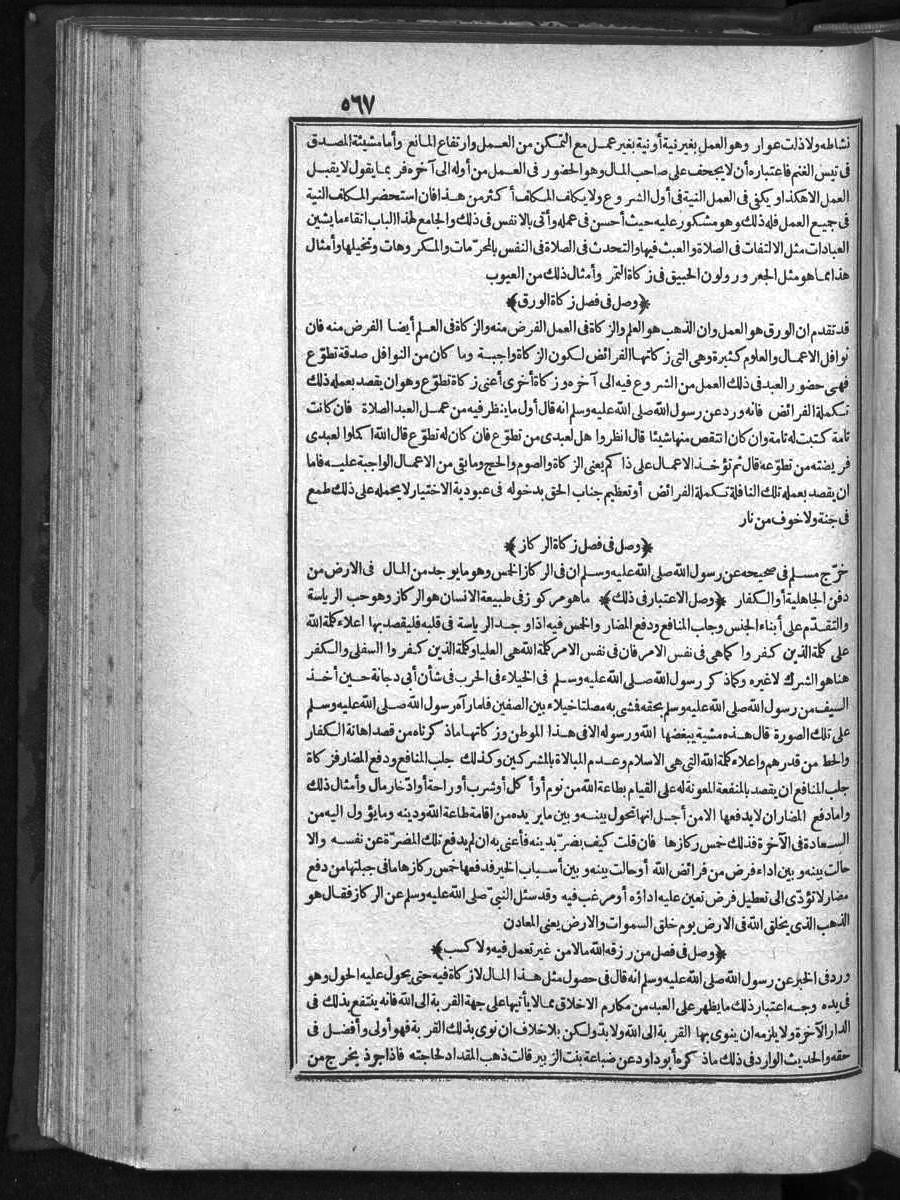 ٥٦٧
نشاطه ولا ذات عوار وهو العمل بغير نية أو نية بغير عمل مع التمكن من العمل وارتفاع المانع وأما مشيئة المصدق
فى تيس الغنم فاعتباره أن لا يجحف على صاحب المال وهو الحضور فى العمل من أوله الى آخره فربما يقول لا يقبل
العمل الا هكذا ويكفى فى العمل النية فى أول الشروع ولا يكلف المكلف أكثر من هذا فان استحضر المكلف النية
فى جميع العمل فله ذلك وهو مشكور عليه حيث أحسن فى عمله وأتى بالانفس فى ذلك والجامع لهذا الباب اتقاء ما يشين
العبادات مثل الالتفات فى الصلاة والعبث فيها والتحدث فى الصلاة فى النفس بالمحرّمات والمكروهات وتخيلها وأمثال
هذا مما هو مثل الجعرور ولون الحبيق فى زكاة التمر وأمثال ذلك من العيوب
﴿وصل فى فصل زكاة الورق﴾
قد تقدم ان الورق هو العمل وان الذهب هو العلم والزكاة فى العمل الفرض منه والزكاة فى العلم أيضا الفرض منه فان
نوافل الاعمال والعلوم كثيرة وهى التى زكاتها الفرائض لكون الزكاة واجبة وما كان من النوافل صدقة تطوّع
فهى حضور العبد فى ذلك العمل من الشروع فيه الى آخره وزكاة أخرى أعنى زكاة تطوّع وهو ان يقصد بعمله ذلك
تكملة الفرائض فانه ورد عن رسول الله صلى الله عليه وسلم انه قال أول ما ينظر فيه من عمل العبد الصلاة فان كانت
تامة كتبت له تامة وان كان انتقص منها شيئا قال انظروا هل لعبدى من تطوّع فان كان له تطوّع قال الله اكملوا لعبدى
فريضته من تطوّعه قال ثم تؤخذ الاعمال على ذاكم يعنى الزكاة والصوم والحج وما بقى من الاعمال الواجبة عليه فاما
ان يقصد بعمله تلك النافلة تكملة الفرائض أو تعظيم جناب الحق بدخوله فى عبودية الاختيار لا يحمله على ذلك طمع
فى جنة ولا خوف من نار
﴿وصل فى فصل زكاة الركاز﴾
خرّج مسلم فى صحيحه عن رسول الله صلى الله عليه وسلم ان فى الركاز الخمس وهو ما يوجد من المال فى الارض من
دفن الجاهلية أو الكفار ﴿وصل الاعتبار فى ذلك﴾ ما هو مركوز فى طبيعة الانسان هو الركاز وهو حب الرياسة
والتقدّم على أبناء الجنس وجلب المنافع ودفع المضار والخمس فيه اذا وجد الرياسة فى قلبه فليقصد بها اعلاء كلمة الله
على كلمة الذين كفروا كما هى فى نفس الامر فان فى نفس الامر كلمة الله هى العليا وكلمة الذين كفروا السفلى والكفر
هنا هو الشرك لا غيره وكما ذكر رسول الله صلى الله عليه وسلم فى الخيلاء فى الحرب فى شأن أبى دجانة حين أخذ
السيف من رسول الله صلى الله عليه وسلم بحقه فمشى به مصلتا خيلاء بين الصفين فلما رآه رسول الله صلى الله عليه وسلم
على تلك الصورة قال هذه مشية يبغضها الله ورسوله الا فى هذا الموطن وزكاتها ما ذكرناه من قصد اهانة الكفار
والحط من قدرهم واعلاء كلمة الله التى هى الاسلام وعدم المبالاة بالمشركين وكذلك جلب المنافع ودفع المضار فزكاة
جلب المنافع ان يقصد بالمنفعة المعونة له على القيام بطاعة الله من نوم أو أكل أو شرب أو راحة أو ادّخار مال وأمثال ذلك
واما دفع المضار ان لا يدفعها الا من أجل انها تحول بينه وبين ما يريده من اقامة طاعة الله ودينه وما يؤول اليه من
السعادة فى الآخرة فذلك خمس ركازها فان قلت كيف يضرّ بدينه فأعنى به ان لم يدفع تلك المضرّة عن نفسه والا
حالت بينه وبين اداء فرض من فرائض الله أو حالت بينه وبين أسباب الخير فدفعها خمس ركازها ما فى جبلتها من دفع
مضار لا تؤدّى الى تعطيل فرض تعين عليه اداؤه أو مرغب فيه وقد سئل النبىّ صلى الله عليه وسلم عن الركاز فقال هو
الذهب الذى يخلق الله فى الارض يوم خلق السموات والارض يعنى المعادن
﴿وصل فى فصل من رزقه الله مالا من غير تعمل فيه ولا كسب﴾
ورد فى الخبر عن رسول الله صلى الله عليه وسلم انه قال فى حصول مثل هذا المال لا زكاة فيه حتى يحول عليه الحول وهو
فى يده وجه اعتبار ذلك ما يظهر على العبد من مكارم الاخلاق مما لا يأتيها على جهة القربة الى الله فانه ينتفع بذلك فى
الدار الآخرة ولا يلزمه ان ينوى بها القربة الى الله ولا بد ولكن بلا خلاف ان نوى بذلك القربة فهو أولى وأفضل فى
حقه والحديث الوارد فى ذلك ما ذكره أبو داود عن ضباعة بنت الزبير قالت ذهب المقداد لحاجته فاذا جرذ يخرج من